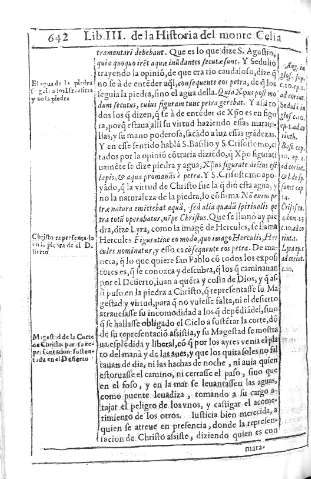 642 Lib. III. de la Historia del monte Celia
tramontari debebant. Que es lo que dize S. Agustin,
quia quoquo iret aque inundantes secutæ sunt. Y Sedulio
trayendo la opinió, de que era rio caudaloso, dize q̃
no se à de entéder aqui, consequente eos petra, q̃ los
seguia la piedra, sino el agua della. Quia Xps post mo
dum secutus, cuius figuram tunc petra gerebat. Y a si to
dos los q̃ dizen, q̃ se à de entéder de Xp̃o es en figu
ra, porq̃ estaua alli su virtud haziendo essas maraui-
llas, y su mano poderosa, sacádo a luz essas grádezas.
Y en este sentido habla S. Basilio y S. Crisostemo, ci-
tados por la opinió cótraria diziédo, q̃ Xp̃o figurati
uaméte se dize piedra y agua,
y aqua promanans è petra. Y S. Crisostemo apo
yádo, q̃ la virtud de Christo fue la q̃ dió esta agua, y
no la naturaleza de la piedra, lo có suma Nó enim pe
træ natura emittebat aquã, sed alia quædã spiritualis pe
tra totũ operabatur, nipe Christus. Que se llamó ay pie
dra, dize Lyra, como la imagé de Hercules, se llama
Hercules Figuratiue eo modo, quo imago Herculis, Her
cules nominatur, y esso es consequente eos petra. De ma
nera, q̃ lo que quiere san Pablo có todos los exposi
tores es, q̃ se conozca y descubra, q̃ los q̃ caminauan
por el Decierto, iuan a quéta y costa de Dios, y as-
q̃ puso en la piedra a Christo, q̃ representasse su Ma
gestad y virtud, para q̃ no vuiesse falta, ni el desierto
atrauesasse su incomodidad a los q̃ depédiá del, sino
q̃ se hallasse obligado el Cielo a sustétar la corte, dó
de su representació asistia, y su Magestad se mostra
ua espléndida y liberal, có q̃ por los ayres venia el pla
to del maná y de las aues, y que los quita soles no fal
tauan de dia, ni las hachas de noche, ni auia quien
estoruasse el camino, ni cerrasse el paso, sino que
en el foso, y en la mar se leuantassen las aguas,
como puente leuadiza, tomando a su cargo a-
tajar el peligro de los vnos, y castigar el acome-
timiento de los otros. Iusticia bien merecida, a
quien se atreue en presencia, donde la represen-
tacion de Christo asiste, diziendo quien es con
mira-
El agua de la piedra
y no la piedra
Christo representado
en la piedra de el D-
sierto
Magestad de la Corte
de Christo por su re-
presentacion susten-
tada en el Desierto